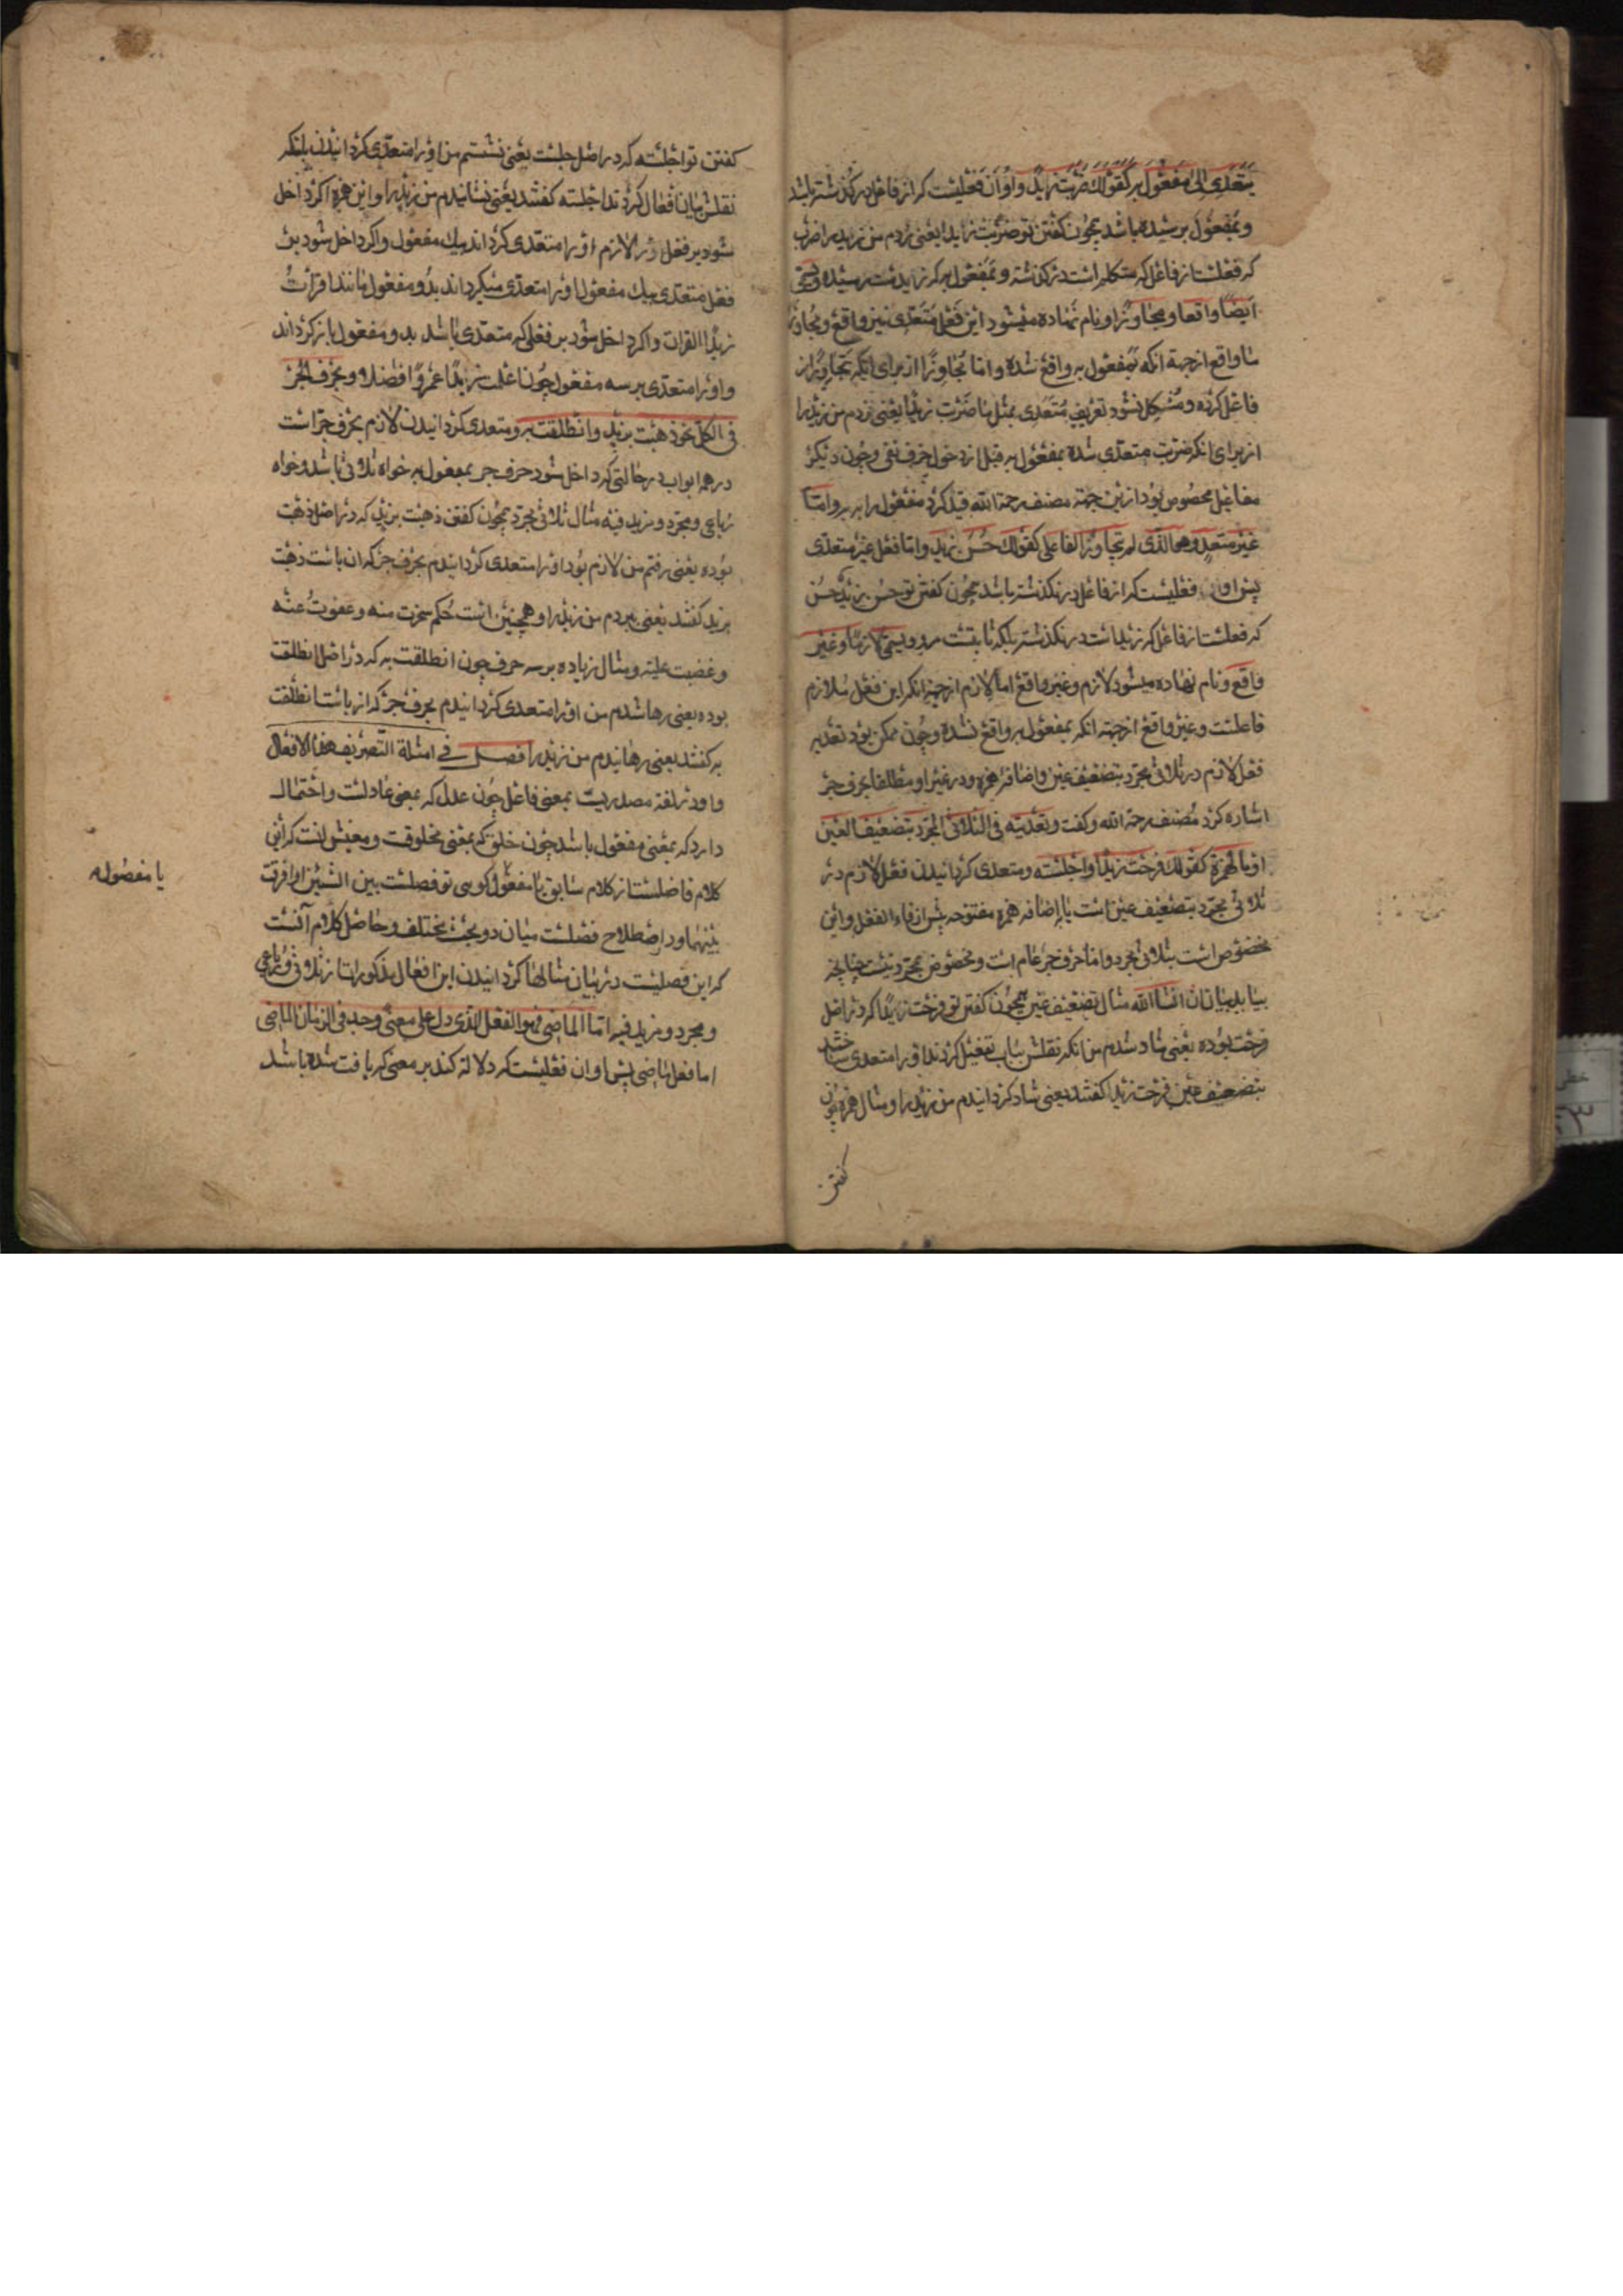 یتعدی الی مفعول به کقولک ضربت زیدا و او آن فعلیست که از فاعل در گذشته باشد
و بمفعول به رسیده باشد همچون کفتن تو ضربت زیدا یعنی زدم من زید را ضرب
که فعلست از فاعل که متکلم است در گذشته و بمفعول به که زیدست رسیده و یسمی
ایضا واقعا و مجاوزا و نام نهاده میشود این فعل متعدی نیز واقع و مجاوز
اما واقع از جهة انکه بمفعول به واقع شده و اما مجاوزا از برای انکه تجاوز از
فاعل کرده و مشکل نشود تعریف متعدی بمثل ما ضربت زیدا یعنی نزدم من زید را
از برای انکه ضربت متعدی شده بمفعول به قبل از دخول حرف نفی و چون دیکر
مفاعیل مخصوص بود ازین جهة مصنف رحمة الله قید کرد مفعول را به به و اما
غیر متعد و هو الذی لم یتجاوز الفاعل کقولک حسن زید و اما فعل غیر متعدی
پس او ان فعلیست که از فاعل در نکذشته باشد همچون کفتن تو حسن زید حسن
که فعلست از فاعل که زید است در نکذشته بلکه ثابتست درو و یسمی لازما و غیر
واقع و نام نهاده میشود لازم و غیر واقع اما لازم از جهة انکه این فعل ملازم
فاعلست و غیر واقع از جهة انکه بمفعول به واقع نشده و چون ممکن بود تعدیه
فعل لازم در ثلاثی مجرد بتضعیف عین و اضافه همزه و در غیر او مطلقا بحرف جر
اشاره کرد مصنف رحمة الله و کفت و تعدیته فی الثلاثی المجرد بتضعیف العین
او بالهمزة کقولک فرحت زیدا و اجلسته و متعدی کردانیدن فعل لازم در
ثلاثی مجرد بتضعیف عین است یا باضافه همزه مفتوحه پیش از فاء الفعل و این
مخصوص است بثلاثی مجرد و اما حرف جر عام است و مخصوص بمجرد نیست چنانچه
بیاید بیان ان انشا الله مثال تضعیف عین همچون کفتن تو فرحت زیدا که در اصل
فرحت بوده یعنی شاد شدم من انکه نقلش بباب تفعیل کردند او را متعدی ساختند
بتضعیف عین فرحت زیدا کفتند یعنی شاد کردانیدم من زید را و مثال همزه چون
کفتن
کفتن تو اجلسته که در اصل جلست یعنی نشستم من او را متعدی کردانیدند بانکه
نقلش بباب افعال کردند اجلسته کفتند یعنی نشانیدم من زید را و این همزه اکر داخل
شود بر فعل لازم او را متعدی کرداند بیک مفعول و اکر داخل شود بر
فعل متعدی بیک مفعول او را متعدی میکرداند بدو مفعول مانند اقرأت
زیدا القران و اکر داخل شود بر فعلی که متعدی باشد بدو مفعول باز کرداند
و او را متعدی بر سه مفعول چون اعلمت زیدا عمروا فاضلا و بحرف الجر
فی الکل نحو ذهبت بزید و انطلقت به و متعدی کردانیدن لازم بحرف جر است
در همه ابواب در حالتی که داخل شود حرف جر بمفعول به خواه ثلاثی باشد و خواه
رباعی و مجرد و مزید فیه مثال ثلاثی مجرد همچون کفتن ذهبت بزید که در اصل ذهبت
بوده یعنی رفتم من لازم بود او را متعدی کردانیدم بحرف جر که ان باست ذهبت
بزید کفتند یعنی بردم من زید را و همچنین است حکم سخرت منه و عفوت عنه
و غضبت علیه و مثال زیاده بر سه حرف چون انطلقت به که در اصل انطلقت
بوده یعنی رها شدم من او را متعدی کردانیدم بحرف جر که ان باست انطلقت
به کفتند یعنی رهانیدم من زید را فصل فی امثلة التصریف هذه الافعال
و او در لغة مصدریست بمعنی فاعل چون عدل که بمعنی عادلست و احتمال
دارد که بمعنی مفعول باشد چون خلق که بمعنی مخلوقست و معینش انست که این
کلام فاصلست از کلام سابق یا مفعول کویی تو فصلت بین الشیئین او فرقت
بینهما و در اصطلاح فصلست میان دو بحث مختلف و حاصل کلام آنست
که این فصلیست در بیان مثالها کردانیدن این افعال مذکورات از ثلاثی و رباعی
و مجرد و مزید فیه اما الماضی فهو الفعل الذی دل علی معنی وجد فی الزمان الماضی
اما فعل ماضی پس او ان فعلیست که دلالة کند بر معنی که یافت شده باشد
یا مفصوله